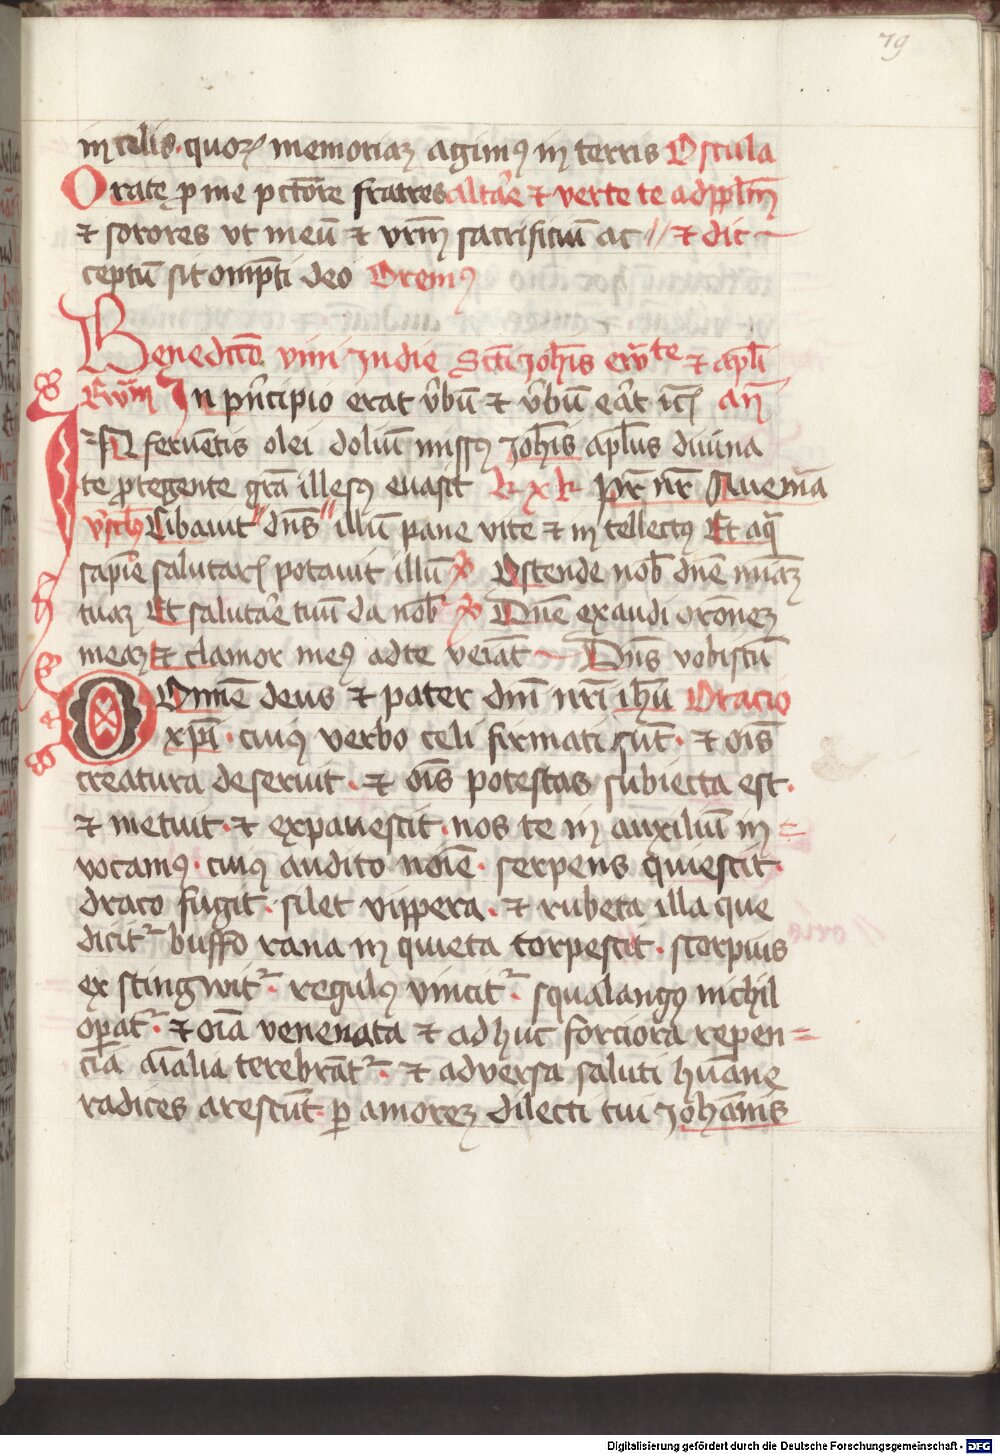 79
in celis · quoꝝ memoriaꝫ agimꝰ in terris Oscula
Oratę ꝓ me pctōre fratres altār̄e et verte te ad ppl̄m
et sorores vt meū et vr̄m sacrificiū ac // et dic
ceptū sit omp̄ti deo Oremꝰ
Benedictō vini in die Scti ioh̄is ew̄te et apl̄i
Ew̄m In pⁱncipio erat v̄bū et v̄bū eāt ic̄ꝫ an̄
IN feruentis olei doliū missꝰ ioh̄is apl̄us diuina
te ꝓtegente gr̄a illesꝰ euasit k x k Pr̄ nr̄ Aue mā
Cibauit dn̄s illū pane vite et intellectꝰ Et aq̄
sapiē salutarꝭ potauit illū ℟ Ostende nob̄ dn̄e miāꝫ
tuaꝫ Et salutār̄e tuū da nob̄ ℟ Dn̄e exaudi orōneꝫ
meaꝫ Et clamor meꝰ ad te veiāt Dn̄s vobiscū
Domīe deus et pater dn̄i nr̄i ih̄u Oracio
xp̄i · cuiꝰ verbo celi firmati sūt · et oīs
creatura deseruit · et oīs potestas subiecta est ·
et metuit · et expauescit · nos te in auxiliū in=
vocamꝰ · cuiꝰ audito noīe · serpens quiescit ·
draco fugit · silet vippera · et rubeta illa que
dicitᷣ buffo rana inquieta torpescit · scorpius
exstingwitᷣ · regulꝰ vincitᷣ · squalangꝰ nichil
oꝑatᷣ · et oīa venenata et adhuc forciora repen=
cīa aīalia terebrātᷣ · et adversa saluti hūane
radices arescūt · ꝑ amoreꝫ dilecti tui johānis
Digitalisierung gefördert durch die Deutsche Forschungsgemeinschaft - DFG